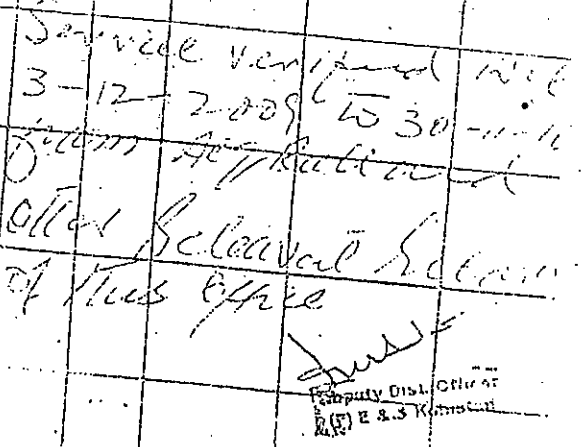 Service verified w.e.f
3-12-2009 to 30-11-
from Acq Roll and
other Relevant Record
of this office
Deputy Dist. Officer
(F) E & S Kohistan